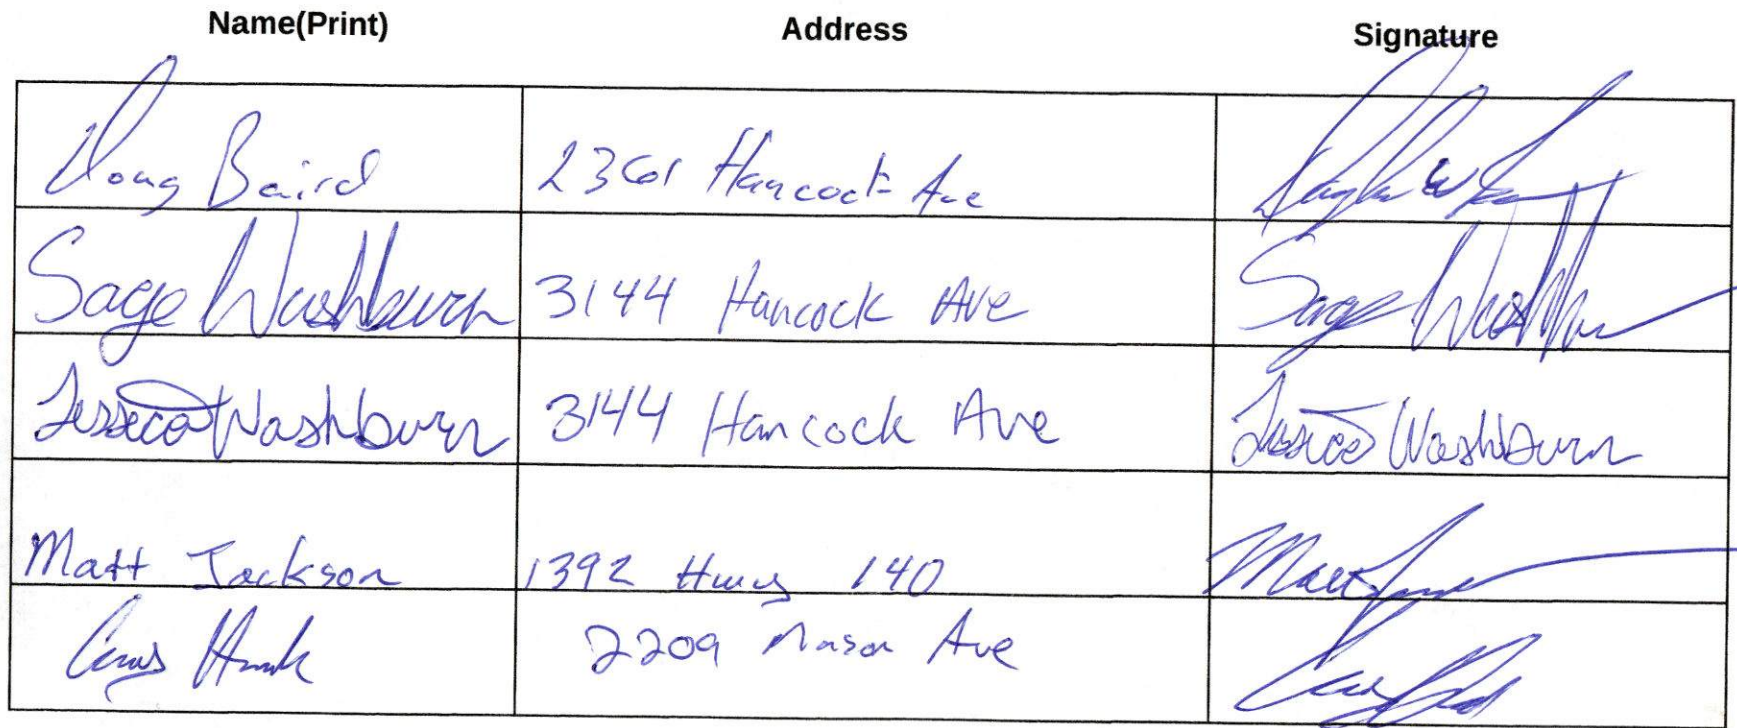 Name(Print) Address Signature
Doug Baird 2361 Hancock Ave
Sage Washburn 3144 Hancock Ave Sage Washburn
Jessica Washburn 3144 Hancock Ave Jessica Washburn
Matt Jackson 1392 Hwy 140 Matt
2209 Mason Ave